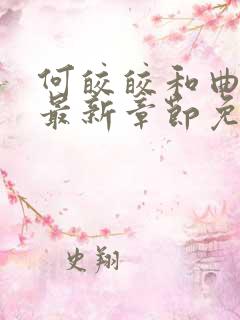 何皎皎和曲
最新章節免
史翔